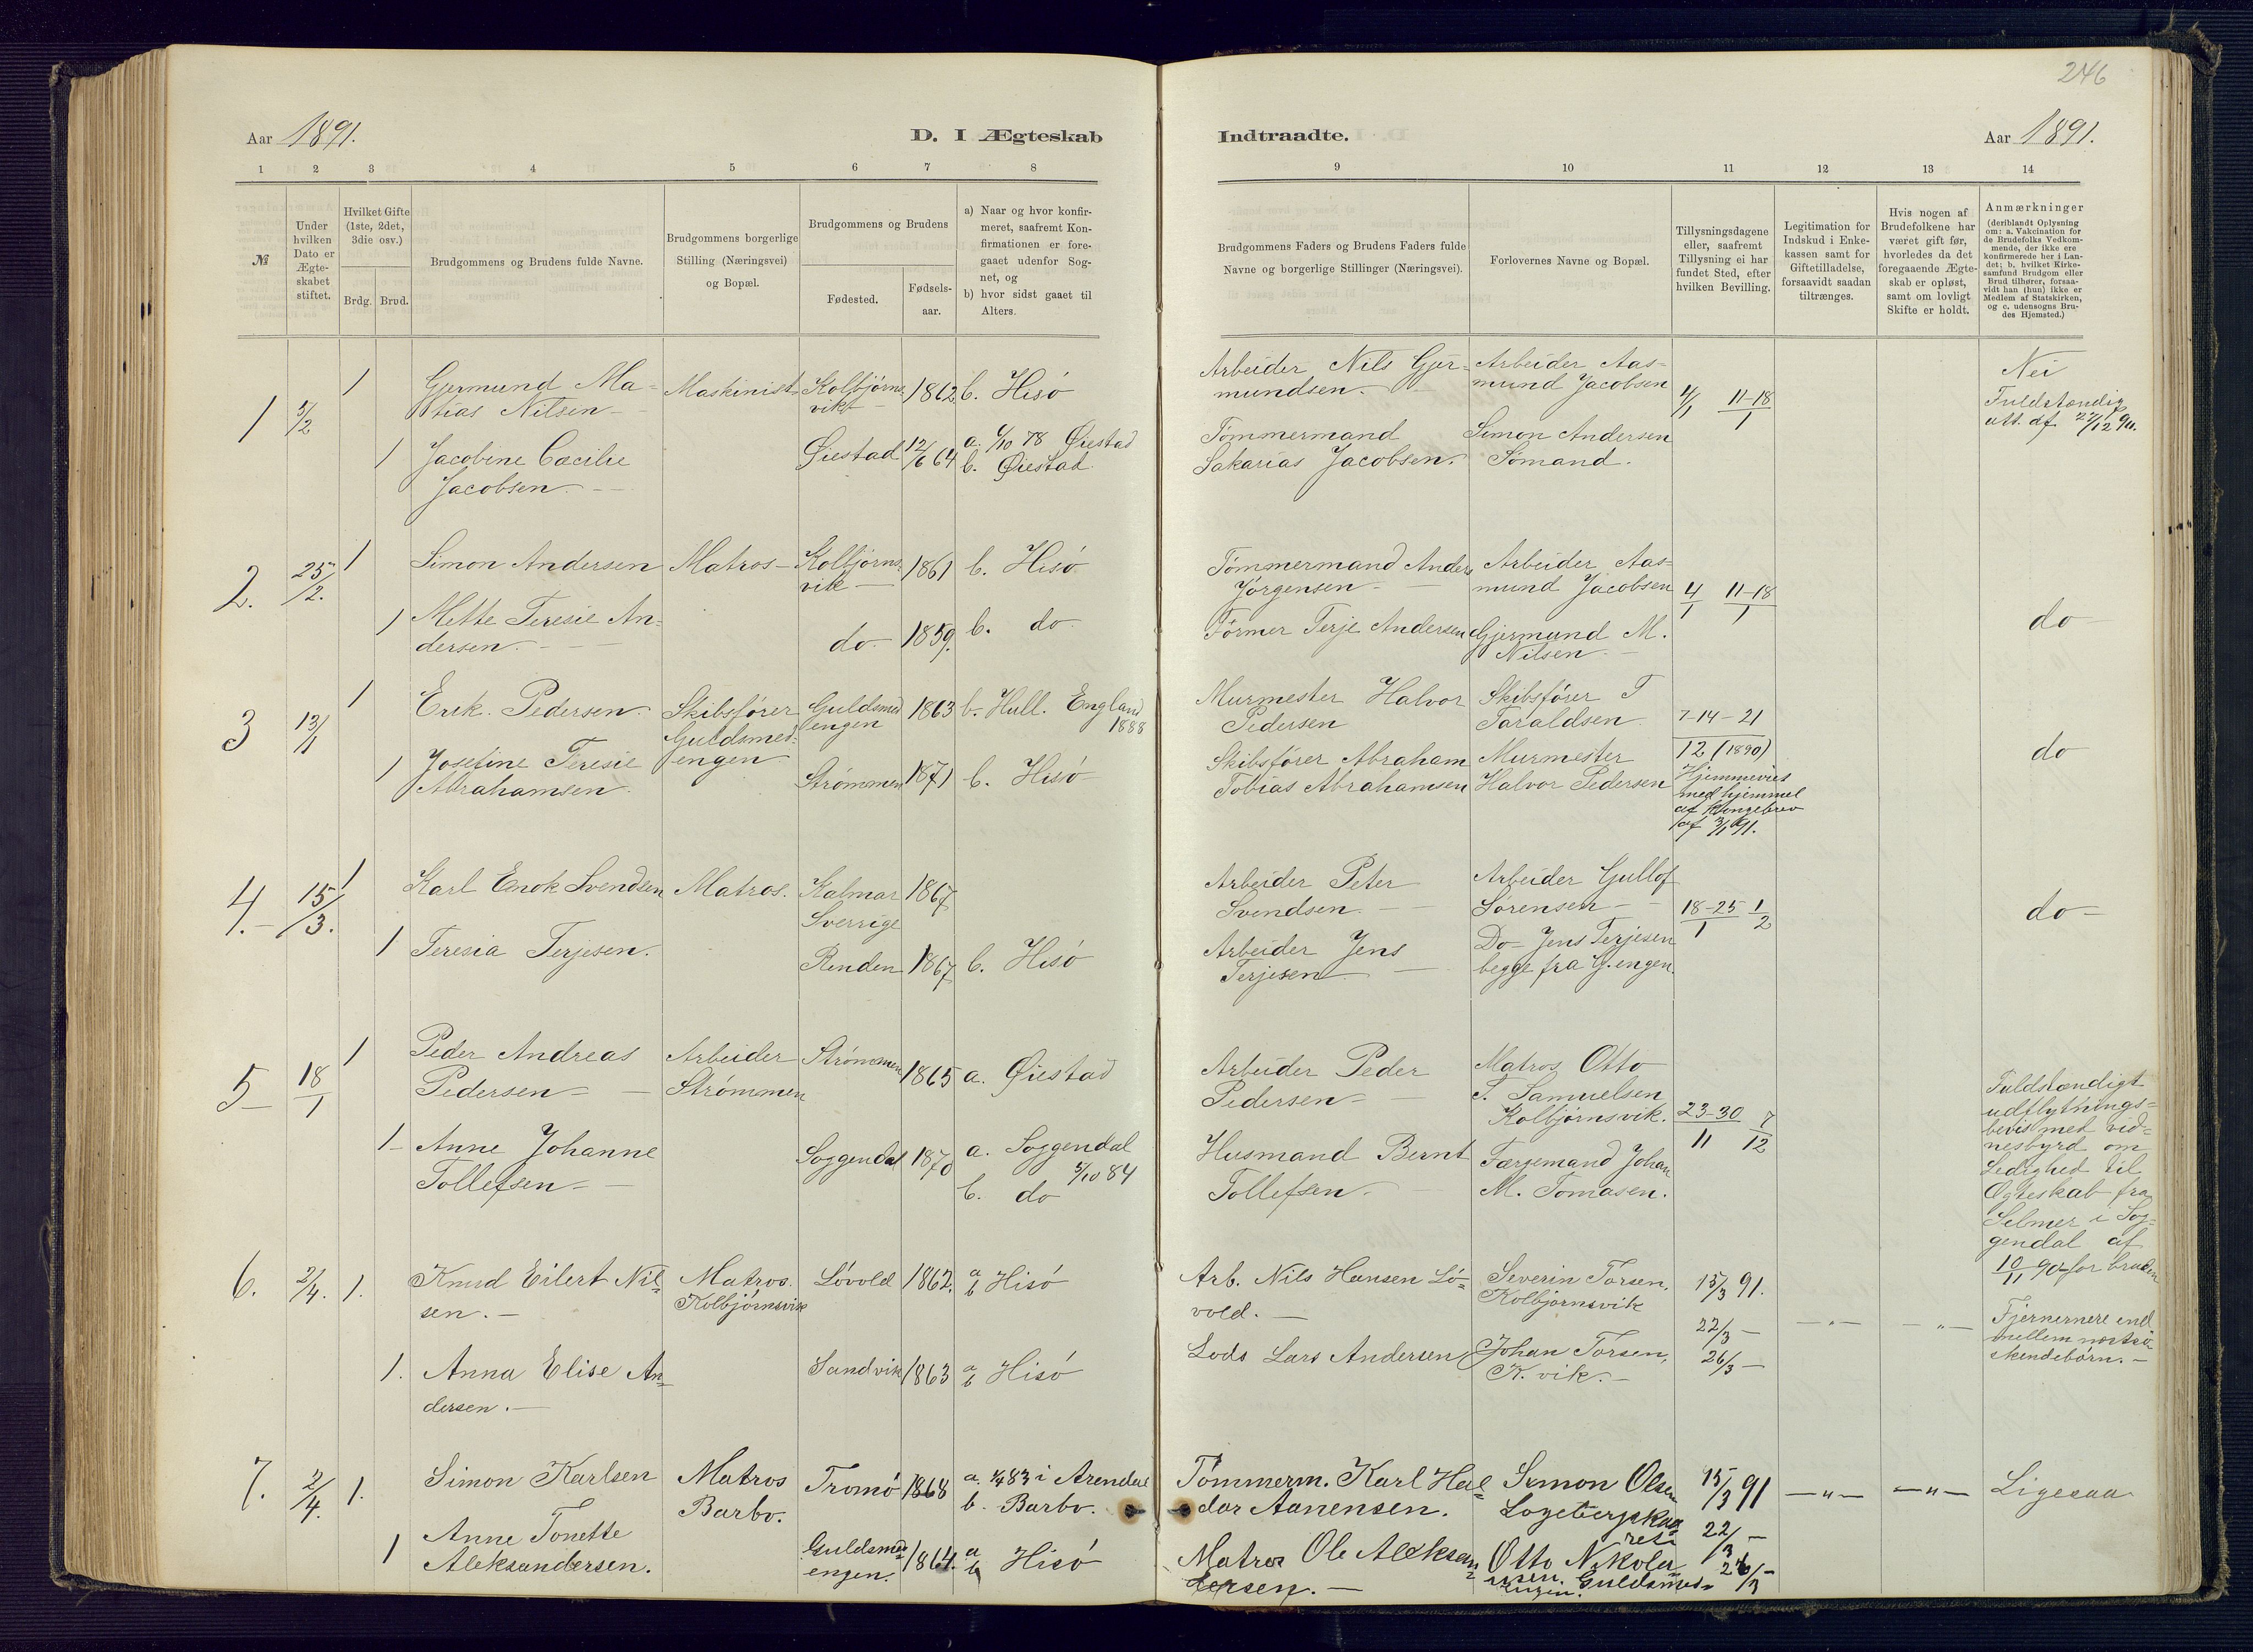 246
Aar 1891.
D. I Ægteskab
Indtraadte.
Aar 1891.
1 2 3 4 5 6 7 8
9 10 11 12 13 14
№
Under
hvilken
Dato er
Ægte-
skabet
stiftet.
Hvilket Gifte
(1ste, 2det,
3die osv.)
Brdg. Brud.
Brudgommens og Brudens fulde Navne.
Brudgommens borgerlige
Stilling (Næringsvei)
og Bopæl.
Brudgommens og Brudens
Fødested.
Fødsels-
aar.
a) Naar og hvor konfir-
meret, saafremt Kon-
firmationen er fore-
gaaet udenfor Sog-
net, og
b) hvor sidst gaaet til
Alters.
Brudgommens Faders og Brudens Faders fulde
Navne og borgerlige Stillinger (Næringsvei).
Forlovernes Navne og Bopæl.
Tillysningsdagene
eller, saafremt
Tillysning ei har
fundet Sted, efter
hvilken Bevilling.
Legitimation for
Indskud i Enke-
kassen samt for
Giftetilladelse,
forsaavidt saadan
tiltrænges.
Hvis nogen af
Brudefolkene har
været gift før,
hvorledes da det
foregaaende Ægte-
skab er opløst,
samt om lovligt
Skifte er holdt.
Anmærkninger
(deriblandt Oplysning
om: a. Vakcination for
de Brudefolks Vedkom-
mende, der ikke ere
konfirmerede her i Lan-
det; b. hvilket Kirke-
samfund Brudgom eller
Brud tilhører, forsaa-
vidt han (hun) ikke er
Medlem af Statskirken,
og c. udensogns Bru-
des Hjemsted.)
1 5/2 1 Gjermund Ma-
tias Nilsen
Maskinist Kolbjørns-
vik
1862 b. Hisö
1 Jacobine Cæcilie
Jacobsen
Øiestad 12/6 64 a. 6/10 78 Øiestad
b. Øiestad
Arbeider Nils Gjer-
mundsen.
Arbeider Aas-
mund Jacobsen
4/1 11-18/1
Nei
Fuldstændig
att. af 22/12 90.
Tömmermand
Sakarias Jacobsen.
Simon Andersen
Sömand.
2. 25/2. 1 Simon Andersen Matros Kolbjörns-
vik
1861 b. Hisö
1 Mette Teresie An-
dersen.
do 1859. b. do
Tömmermand Anders
Jörgensen
Arbeider Aas-
mund Jacobsen
4/1 11-18/1
do
Former Terje Andersen
Gjermund M.
Nilsen
3 13/1 1 Erik Pedersen
Skibsfører
Guldsmed-
engen
Guldsmed
engen
1863 b. Hull. England
1888
1 Josefine Teresie
Abrahamsen.
Strømmen 1871 b. Hisö
Murmester Halvor
Pedersen
Skibsfører T
Taraldsen
7-14-21
12 (1890)
Hjemmevies
med hjemmel
af Kongebrev
af 3/1 91.
do
Skibsfører Abraham
Tobias Abrahamsen
Murmester
Halvor Pedersen
4. 15/3. 1 Karl Enok Svendsen Matros. Kalmar
Sverrige
1867
1 Teresia Terjesen. Renden 1867 b. Hisö
Arbeider Peter
Svendsen
Arbeider Gullof
Sörensen
18-25/1 1/2
do
Arbeider Jens
Terjesen
Do Jens Terjesen
begge fra G.engen.
5 18/1 1 Peder Andreas
Pedersen
Arbeider
Strømmen
Strømmen 1865 a. Øiestad
1 Anne Johanne
Tollefsen
Soggendal 1870 a. Soggendal
5/10 84
b. do
Arbeider Peder
Pedersen
Matros Otto
T. Samuelsen
Kolbjørnsvik.
23-30/11 7/12
Husmand Bernt
Tollefsen
Færgemand Johan
M. Tomasen.
Fuldstændigt
udflytnings-
bevis med vid-
nesbyrd om
Ledighed til
Ægteskab fra
Selmer i Sog-
gendal af
10/11 90 for bruden
6. 2/4. 1. Knud Eilert Nil-
sen.
Matros.
Kolbjörnsvik
Lövold 1862. a b Hisö
1. Anna Elise An-
dersen.
Sandvik 1863 a b Hisö
Arb. Nils Hansen Lö-
vold.
Severin Torsen,
Kolbjörnsvik
15/3 91.
22/3
26/3
Lods Lars Andersen
Johan Torsen,
K. vik.
Fjernere end
mellem næstsö-
skendebörn.
7. 2/4. 1. Simon Karlsen
Matros
Barbo.
Tromö 1868 a. 1/4 83 i Arendal
b. Barbo.
1 Anne Tonette
Aleksandersen.
Guldsmed-
engen.
1864. a b Hisö
Tömmerm. Karl Hal-
dor Aanensen.
Simon Olsen
15/3 91
22/3
26/3
Ligesaa
Matros Ole Aleksan-
dersen.
Otto Nikolai-
sen. Guldsmed-
engen.